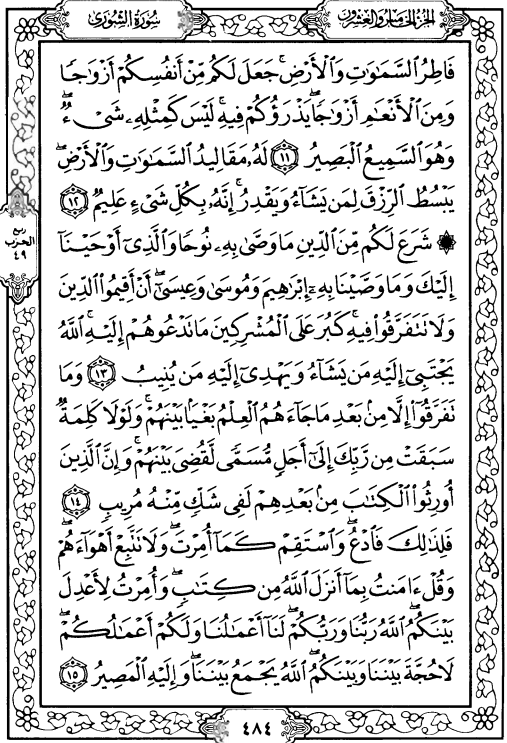 سُورَةُ الشُّورَىٰ
الجُزءُ الخَامِسُ وَالعِشْرُونَ
فَاطِرُ ٱلسَّمَٰوَٰتِ وَٱلْأَرْضِ ۚ جَعَلَ لَكُم مِّنْ أَنفُسِكُمْ أَزْوَٰجًا
وَمِنَ ٱلْأَنْعَٰمِ أَزْوَٰجًا ۖ يَذْرَؤُكُمْ فِيهِ ۚ لَيْسَ كَمِثْلِهِۦ شَىْءٌ ۖ
وَهُوَ ٱلسَّمِيعُ ٱلْبَصِيرُ ١١ لَهُۥ مَقَالِيدُ ٱلسَّمَٰوَٰتِ وَٱلْأَرْضِ ۖ
يَبْسُطُ ٱلرِّزْقَ لِمَن يَشَآءُ وَيَقْدِرُ ۚ إِنَّهُۥ بِكُلِّ شَىْءٍ عَلِيمٌ ١٢
۞ شَرَعَ لَكُم مِّنَ ٱلدِّينِ مَا وَصَّىٰ بِهِۦ نُوحًا وَٱلَّذِىٓ أَوْحَيْنَآ
إِلَيْكَ وَمَا وَصَّيْنَا بِهِۦٓ إِبْرَٰهِيمَ وَمُوسَىٰ وَعِيسَىٰٓ ۖ أَنْ أَقِيمُوا۟ ٱلدِّينَ
وَلَا تَتَفَرَّقُوا۟ فِيهِ ۚ كَبُرَ عَلَى ٱلْمُشْرِكِينَ مَا تَدْعُوهُمْ إِلَيْهِ ۚ ٱللَّهُ
يَجْتَبِىٓ إِلَيْهِ مَن يَشَآءُ وَيَهْدِىٓ إِلَيْهِ مَن يُنِيبُ ١٣ وَمَا
تَفَرَّقُوٓا۟ إِلَّا مِنۢ بَعْدِ مَا جَآءَهُمُ ٱلْعِلْمُ بَغْيًۢا بَيْنَهُمْ ۚ وَلَوْلَا كَلِمَةٌ
سَبَقَتْ مِن رَّبِّكَ إِلَىٰٓ أَجَلٍ مُّسَمًّى لَّقُضِىَ بَيْنَهُمْ ۚ وَإِنَّ ٱلَّذِينَ
أُورِثُوا۟ ٱلْكِتَٰبَ مِنۢ بَعْدِهِمْ لَفِى شَكٍّ مِّنْهُ مُرِيبٍ ١٤
فَلِذَٰلِكَ فَٱدْعُ ۖ وَٱسْتَقِمْ كَمَآ أُمِرْتَ ۖ وَلَا تَتَّبِعْ أَهْوَآءَهُمْ ۖ
وَقُلْ ءَامَنتُ بِمَآ أَنزَلَ ٱللَّهُ مِن كِتَٰبٍ ۖ وَأُمِرْتُ لِأَعْدِلَ
بَيْنَكُمُ ۖ ٱللَّهُ رَبُّنَا وَرَبُّكُمْ ۖ لَنَآ أَعْمَٰلُنَا وَلَكُمْ أَعْمَٰلُكُمْ ۖ
لَا حُجَّةَ بَيْنَنَا وَبَيْنَكُمُ ۖ ٱللَّهُ يَجْمَعُ بَيْنَنَا ۖ وَإِلَيْهِ ٱلْمَصِيرُ ١٥
ربع
الحزب
٤٩
٤٨٤